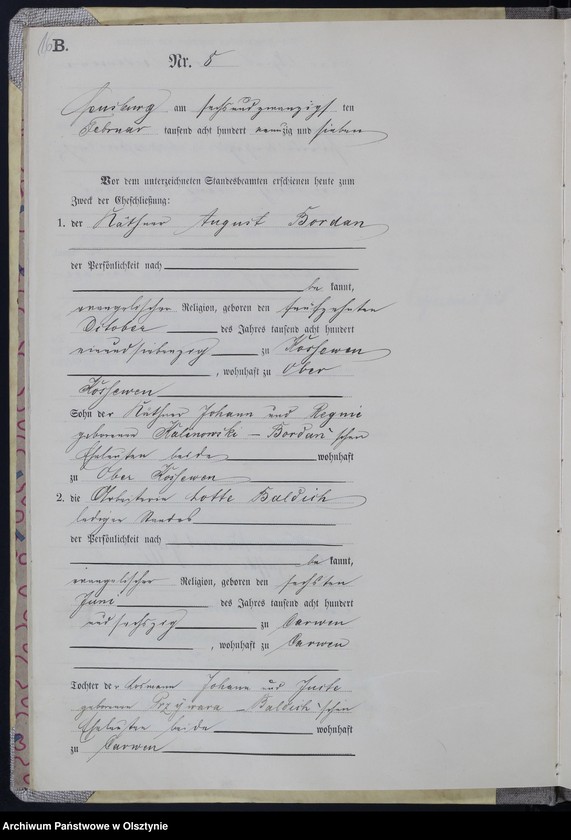 B.
Nr. 8
am sechsundzwanzigs ten
Februar tausend acht hundert neunzig und sieben
Vor dem unterzeichneten Standesbeamten erschienen heute zum
Zweck der Eheschließung:
1. der Käthner August Bordan
der Persönlichkeit nach
be kannt,
evangelischer Religion, geboren den fünfzehnten
October des Jahres tausend acht hundert
zu Kossewen
, wohnhaft zu Ober
Kossewen
Sohn der Käthner Johann und Regine
geborene Kalinowski - Bordan'schen
Eheleuten beide wohnhaft
zu Ober Kossewen
2. die Arbeiterin Lotte Baldeich
ledigen Standes
der Persönlichkeit nach
be kannt,
evangelischer Religion, geboren den sechsten
Juni des Jahres tausend acht hundert
undsechszig zu Carwen
, wohnhaft zu Carwen
Tochter der Losmann Johann und Juste
geborene Przywara - Baldeich'schen
Eheleuten beide wohnhaft
zu Carwen
Archiwum Państwowe w Olsztynie